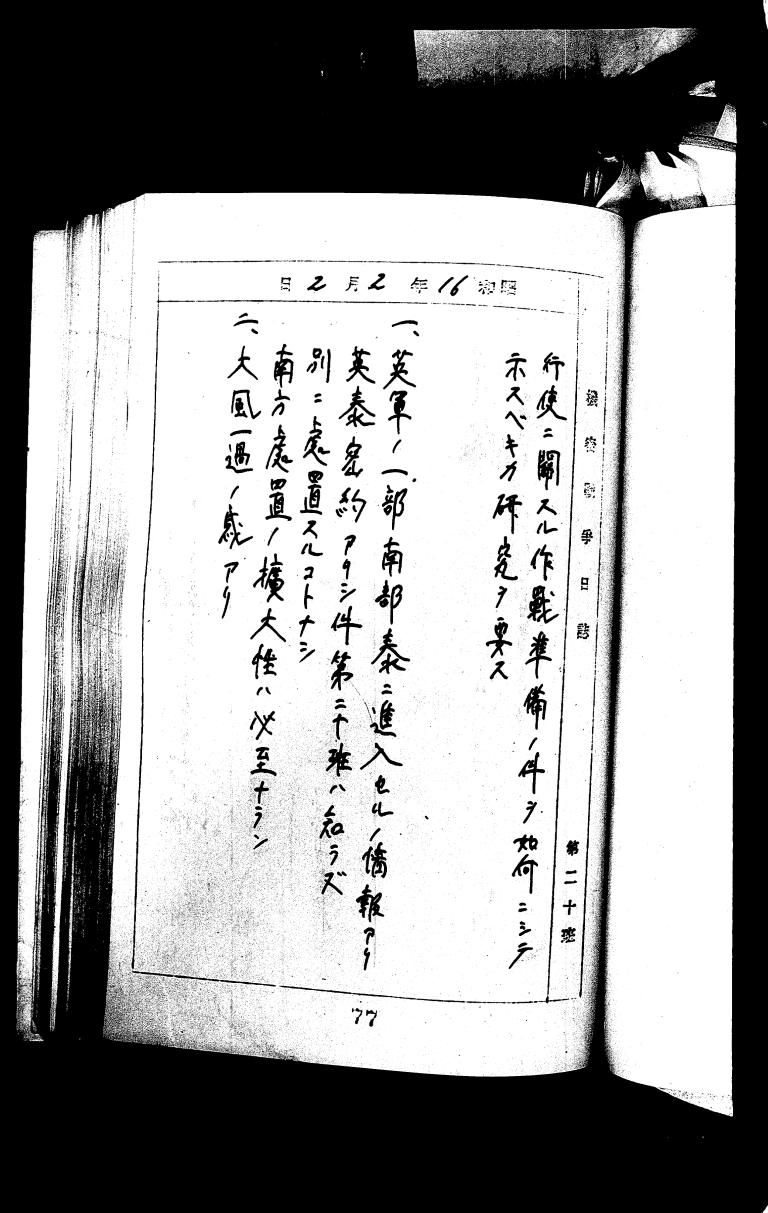 機密戰爭日誌
第二十班
昭和16年2月2日
行使ニ關スル作戰準備ノ件ヲ如何ニシテ
示スベキカ研究ヲ要ス
一、英軍ノ一部南部泰ニ進入セルノ情報アリ
英泰密約アリシ件第二十班ハ知ラズ
別ニ處置スルコトナシ
南方處置ノ擴大性ハ必至ナラン
二、大風一過ノ感アリ
77